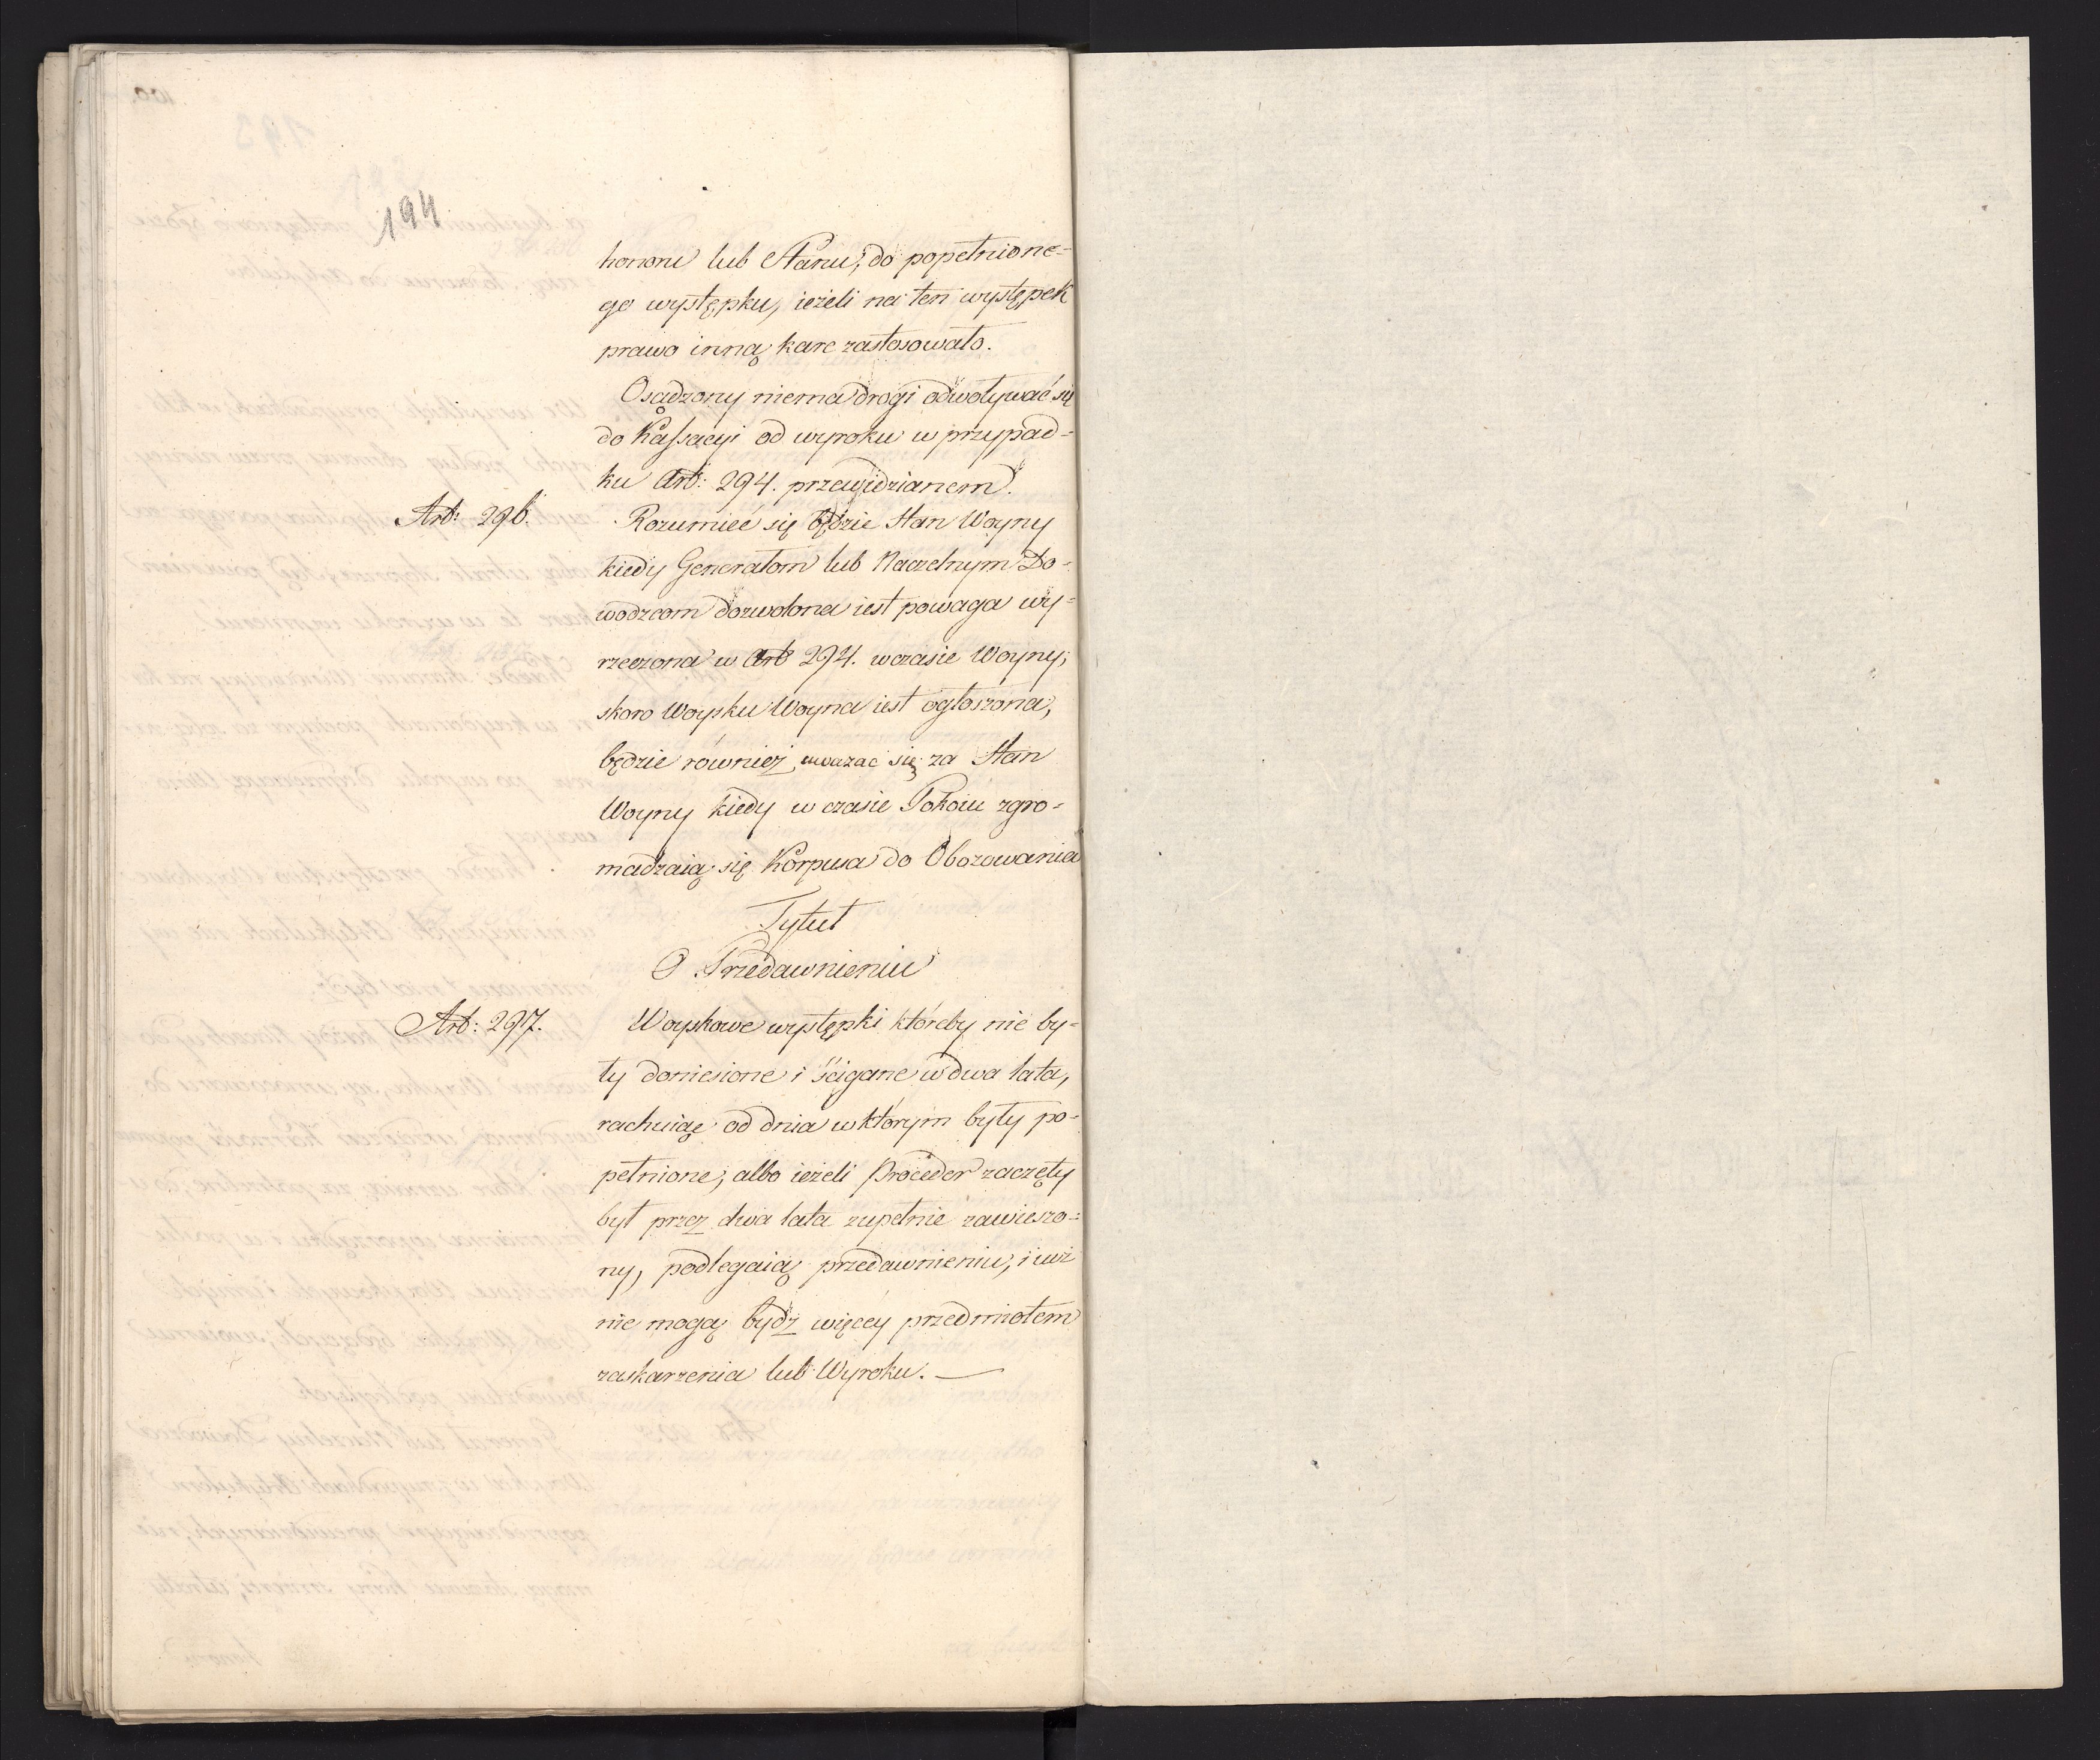 194
honoru lub Stanu, do popełnione-
go występku, ieżeli na ten występek
prawo inną karę zastosowało.
Osądzony niema drogi odwoływać się
do Kassacyi od wyroku w przypad-
ku Art: 294. przewidzianem.
Art: 296.
Rozumieć się będzie Stan Woyny
kiedy Generałom lub Naczelnym Do-
wodzcom dozwolona iest powaga wy-
rzeczona w Art 294. w czasie Woyny,
skoro Woysku Woyna iest ogłoszona,
będzie również uważac się za Stan
Woyny kiedy w czasie Pokoiu zgro-
madzaią się Korpusa do Obozowania
Tytuł
O Przedawnieniu
Art: 297.
Woyskowe występki któreby nie by-
ły doniesione i ścigane w dwa lata,
rachuiąc od dnia w którym były po-
pełnione; albo ieżeli Proceder zaczęty
był przez dwa lata zupełnie zawieszo-
ny, podlegaią przedawnieniu, i iuż
nie mogą bydz więcey przedmiotem
zaskarzenia lub Wyroku. —